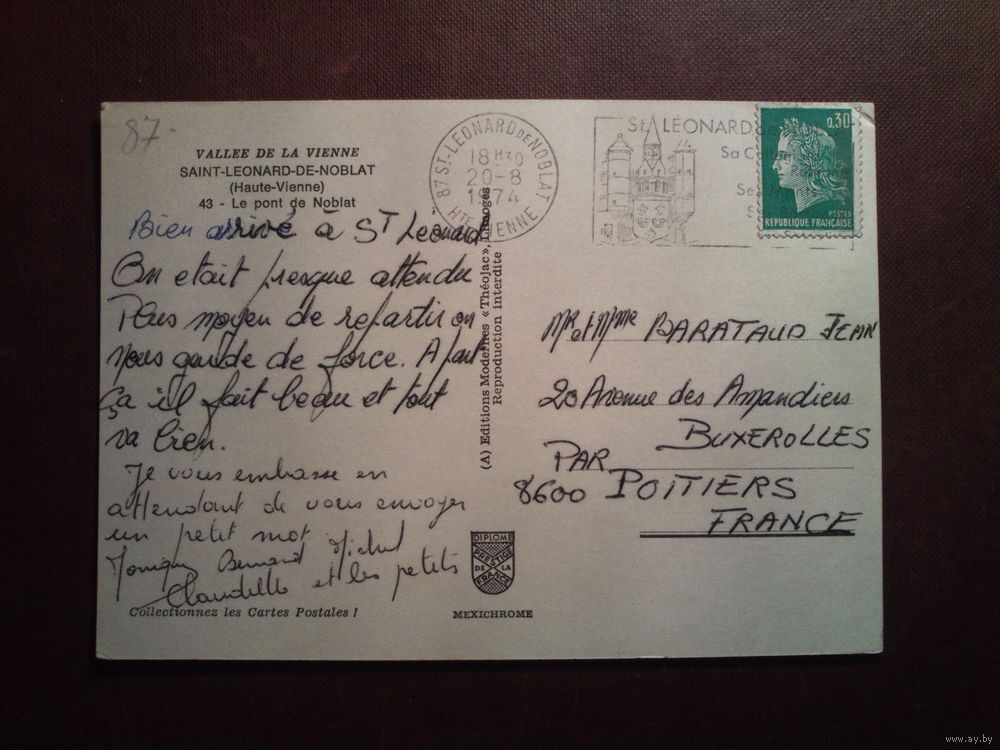 87-
VALLEE DE LA VIENNE
SAINT-LEONARD-DE-NOBLAT
(Haute-Vienne)
43 - Le pont de Noblat
Bien arrivé à ST Léonard
On etait presque attendu
Plus moyen de repartir on
nous garde de force. A part
ça il fait beau et tout
va bien.
Je vous embrasse en
attendant de vous envoyer
un petit mot
Bernard Michel
Claudette et les petits
Collectionnez les Cartes Postales !
(A) Editions Modernes « Théojac », Limoges
Reproduction interdite
87 ST-LEONARD DE NOBLAT
18 H30
20-8
1974
HTE VIENNE
ST LÉONARD
Sa
0,30
POSTES
REPUBLIQUE FRANÇAISE
MR et MME BARATAUD JEAN
20 Avenue des Amandiers
BUXEROLLES
PAR
8600 POITIERS
FRANCE
DIPLOME
PRESTIGE
DE LA
FRANCE
MEXICHROME
www.ay.by